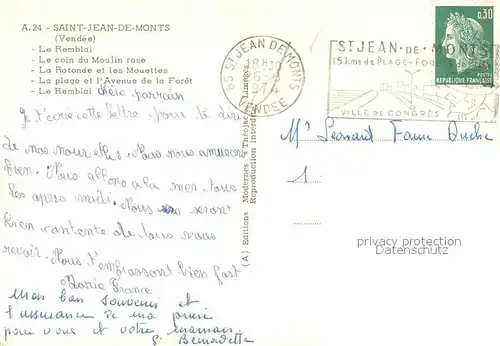 A. 24 - SAINT-JEAN-DE-MONTS
(Vendée)
- Le Remblai
- Le coin du Moulin rose
- La Rotonde et les Mouettes
- La plage et l'Avenue de la Forêt
- Le Remblai
chère parrain
Je t'écris cette lettre pour te dire
de nos nouvelles. Nous nous amusons
bien. Nous allons a la mer tous
les apres midi. Nous seront
bien contente de vous
revoir. Nous t'embrassont bien fort
Marie France
Mon bon souvenir et
l'assurance de ma
pour vous et votre maman.
S. Bernadette
(A) Editions Modernes "Théojac" Limoges
Reproduction Interdite
85 ST JEAN DE MONTS
18H30
1974
VENDEE
ST JEAN-DE-MONTS
15 kms de PLAGE-
VILLE DE CONGRÈS
0,30
REPUBLIQUE FRANÇAISE
privacy protection
Datenschutz